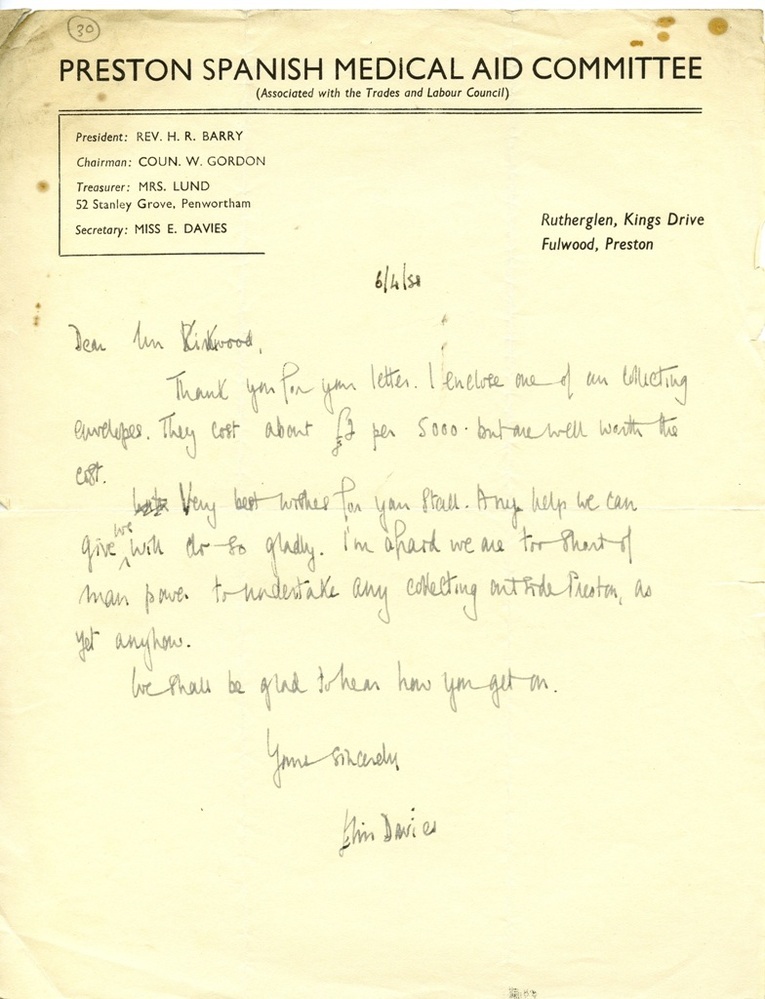 30
PRESTON SPANISH MEDICAL AID COMMITTEE
(Associated with the Trades and Labour Council)
President: REV. H. R. BARRY
Chairman: COUN. W. GORDON
Treasurer: MRS. LUND
52 Stanley Grove, Penwortham
Secretary: MISS E. DAVIES
Rutherglen, Kings Drive
Fulwood, Preston
6/4/38
Dear Kirkwood,
Thank you for your letter. I enclose one of our collecting
envelopes. They cost about £2 per 5000 - but are well worth the
cost.
Very best wishes for your Stall. Any help we can
give we will do so gladly. I'm afraid we are too short of
man power to undertake any collecting outside Preston, as
yet anyhow.
We shall be glad to hear how you get on.
Yours sincerely
Davies